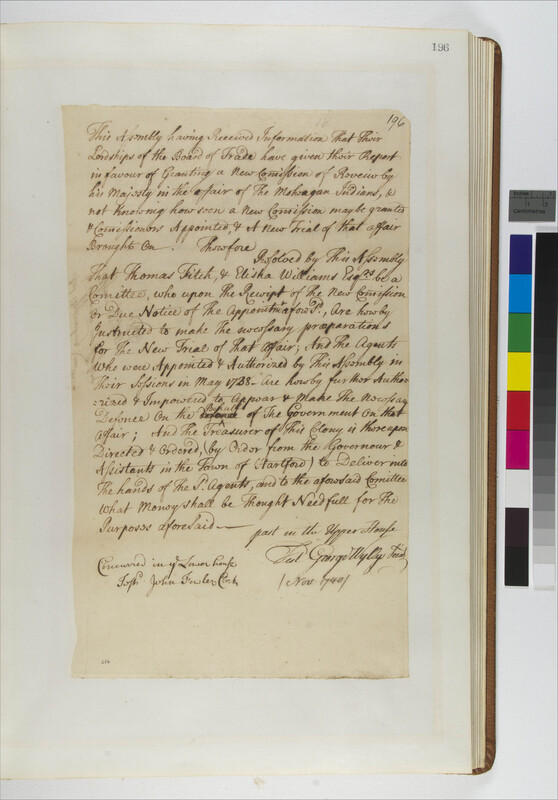 196
196
This Assembly having Received Information That Their
Lordships of the Board of Trade have given their Report
in favour of Granting a New Comission of Review by
his Majesty in the affair of The Moheagan Indians, &
not knowing how soon a New Comission may be granted
& Comissioners Appointed, & A New Trial of that affair
Brought On. Therefore
Resolved by This Assembly
That Thomas Fitch, & Elisha Williams Esqrs. be a
Comittee, who upon the Receipt of the New Comission
or Due Notice of The Appointmt aforesd., Are hereby
Instructed to make the necessary præparations
for The New Trial of That Affair; And The Agents
Who were Appointed & Authorized by This Assembly in
Their Sessions in May 1738 - Are hereby further Autho=
=rized & Impowered to Appear & Make The Necessary
Defence On the Behalf of The Government On that
Affair; And The Treasurer of This Colony is thereupon
Directed & Ordered, (by Order from the Governour &
Assistants in the Town of Hartford) to Deliver into
The hands of The sd. Agents, and to the aforesaid Comittee
What Money shall be Thought Needfull for The
Purposes aforesaid —
past in the Upper House
Test George Wyllys Secry
Concurred in ye Lower house
Test John Fowler Clerk
(Nov 1740)